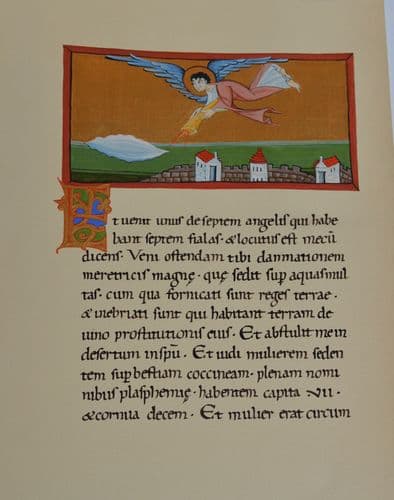 Et uenit unus de septem angelis qui habe
bant septem fialas · & locutus est mecū
dicens · Veni ostendam tibi damnationem
meretricis magnę · quę sedit sup aquas mul
tas · cum qua fornicati sunt reges terrae ·
& inebriati sunt qui habitant terram de
uino prostitutionis eius · Et abstulit me in
desertum in spū · Et uidi mulierem seden
tem sup bestiam coccineam · plenam nomi
nibus plasphemię · habentem capita VII ·
& cornua decem · Et mulier erat circum